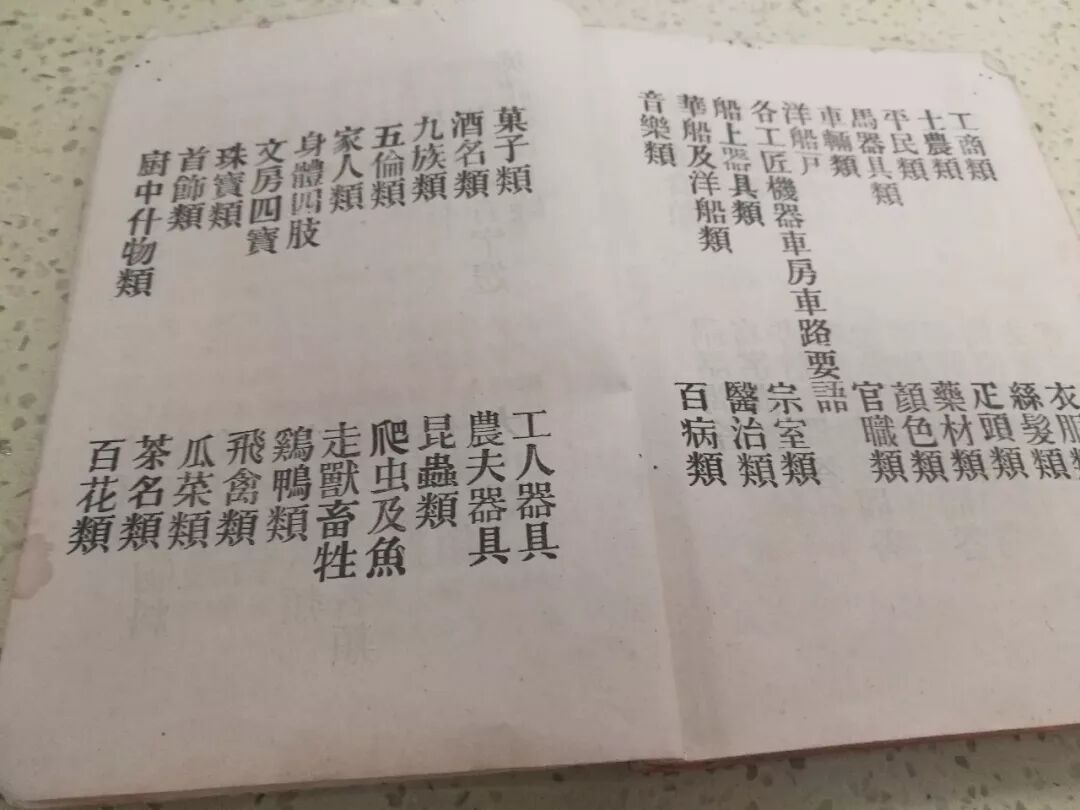 工商類
士農類
平民類
馬器具類
車輛類
洋船戸
各工匠機器車房車路要語
船上器具類
華船及洋船類
音樂類
衣服類
絲髮類
疋頭類
藥材類
顏色類
官職類
宗室類
醫治類
百病類
菓子類
酒名類
九族類
五倫類
家人類
身體四肢
文房四寶
珠寶類
首飾類
厨中什物類
工人器具
農夫器具
昆蟲類
爬虫及魚
走獸畜牲
鷄鴨類
飛禽類
瓜菜類
茶名類
百花類